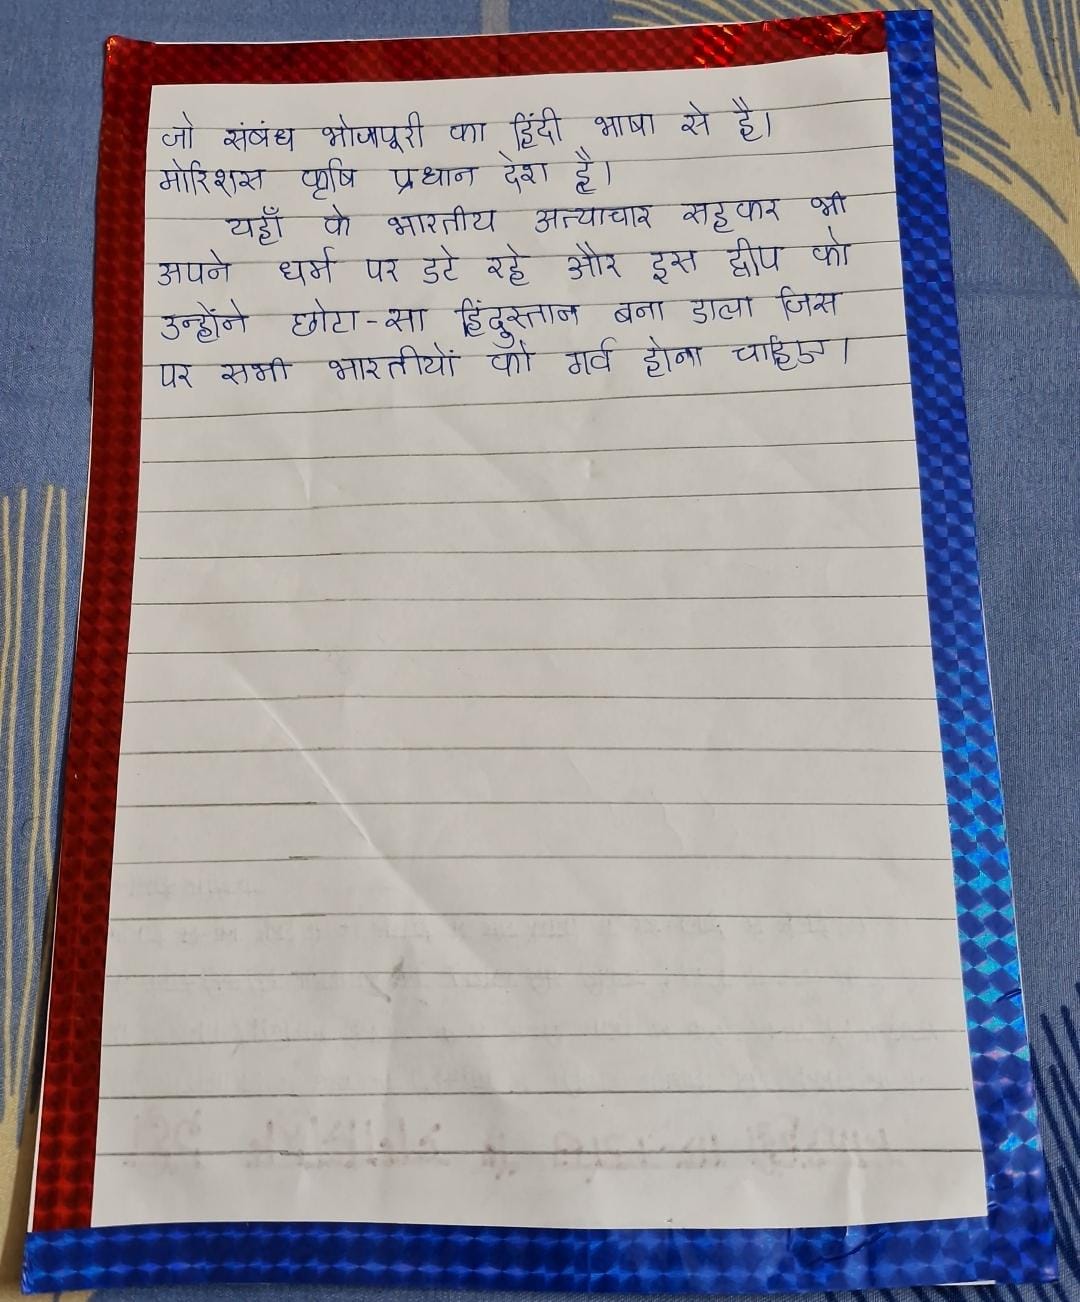 जो संबंध भोजपूरी का हिंदी भाषा से है।
मोरिशस कृषि प्रधान देश है।
यहाँ के भारतीय अत्याचार सहकर भी
अपने धर्म पर डटे रहे और इस द्वीप को
उन्होंने छोटा-सा हिंदुस्तान बना डाला जिस
पर सभी भारतीयों को गर्व होना चाहिए।